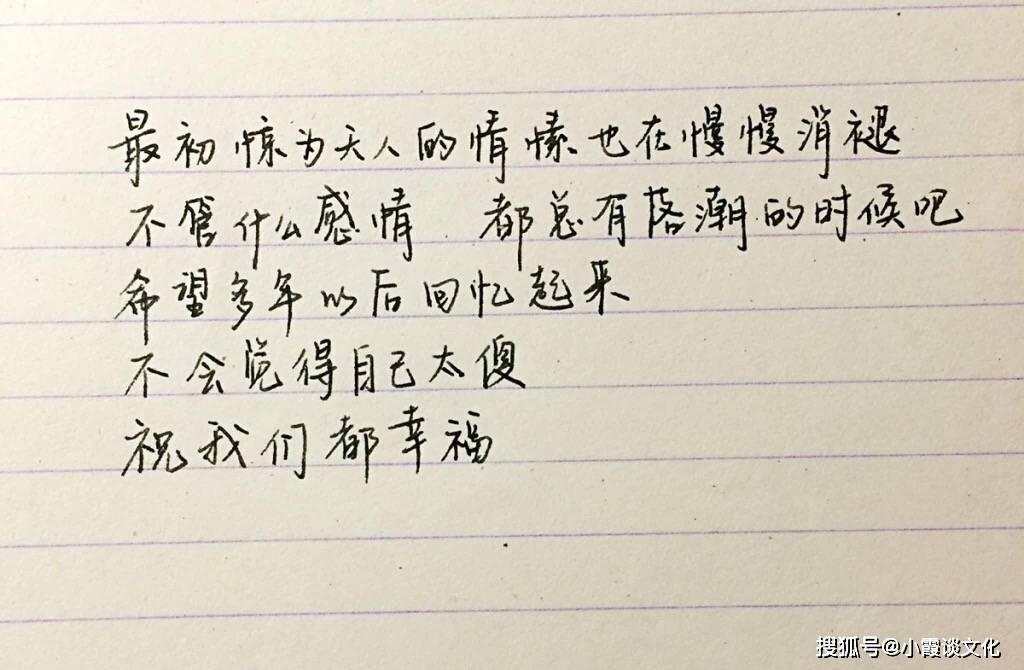 最初惊为天人的情愫也在慢慢消褪
不管什么感情 都总有落潮的时候吧
希望多年以后回忆起来
不会觉得自己太傻
祝我们都幸福
搜狐号@小霞谈文化